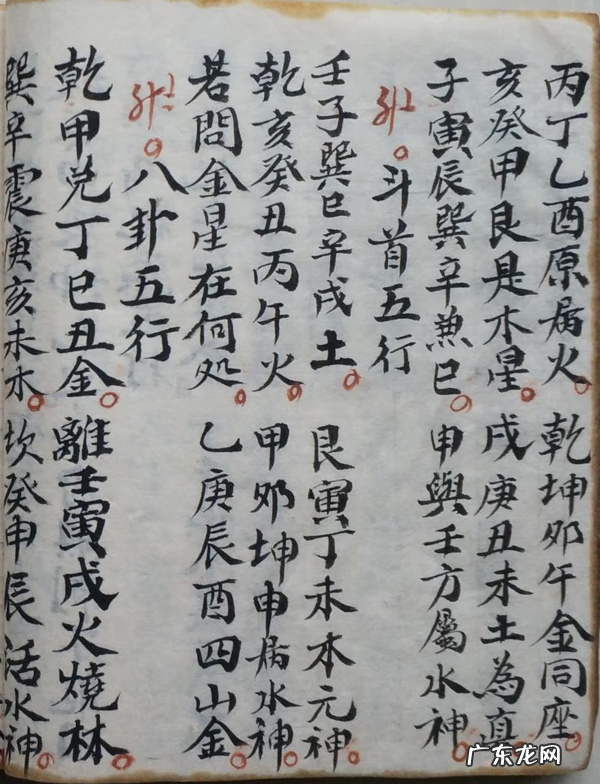 丙丁乙酉原属火。乾坤卯午金同座。
亥癸甲艮是木星。戌庚丑未土為真
子寅辰巽辛兼巳。申與壬方屬水神。
斗首五行
壬子巽巳辛戌土。艮寅丁未木元神。
乾亥癸丑丙午火。甲卯坤申属水神。
若問金星在何処。乙庚辰酉四山金。
八卦五行
乾甲兑丁巳丑金。離壬寅戌火燒林。
巽辛震庚亥未木。坎癸申辰活水神。
广东龙网